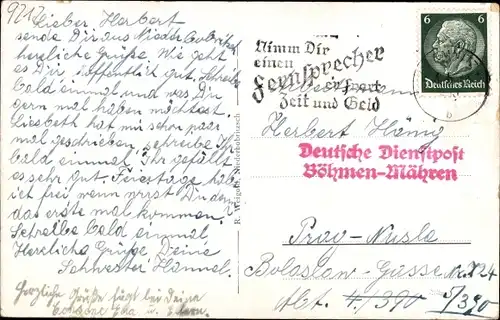 9212
Lieber Herbert
sende Dir aus Nieder
herzliche Grüße. Wie geht
es Dir, hoffentlich gut. Schreibe
bald einmal und was Du
gern mal haben möchtest.
Liesbeth hat mir schon paar
mal geschrieben, schreibe Ihr
bald einmal. Ihr gefällt
es sehr gut. Feiertage hab
ich frei wenn wirst Du denn
das erste mal kommen.
Schreibe bald einmal
Herzliche Grüße Deine
Schwester Hannel.
Herzliche Grüße fügt bei Deine
Ida u.
Nimm Dir
einen
Fernsprecher
er spart
Zeit und Geld
6 6
Deutsches Reich
b
Herbert Hönig
Deutsche Dienstpost
Böhmen-Mähren
Prag-Nusle
Boleslav-Gasse No. 24
Abt. 4/390 5/390